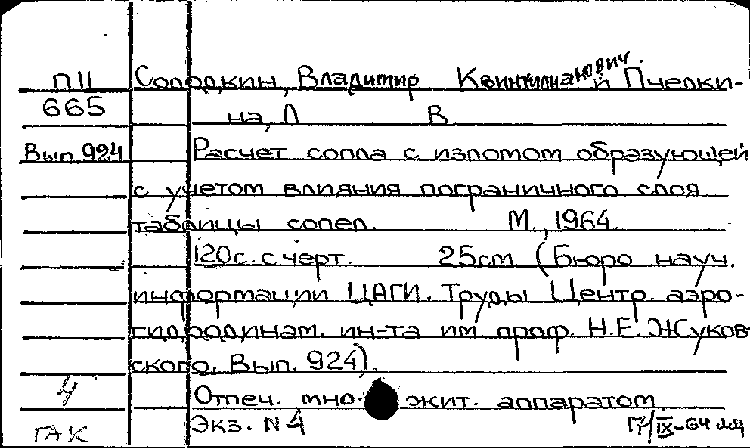 П11 Солодкин, Владимир Квинтилианович и Пчелки-
665 на, Л В
Вып. 924 Расчет сопла с изломом образующей
с учетом влияния пограничного слоя
таблицы сопел. М., 1964.
120с. с черт. 25см (Бюро науч.
информации ЦАГИ. Труды Центр. аэро-
гидродинам. ин-та им проф. Н.Е. Жуков-
ского. Вып. 924).
4 Отпеч. множит. аппаратом.
ГАК Экз. N 4 17/IX-64